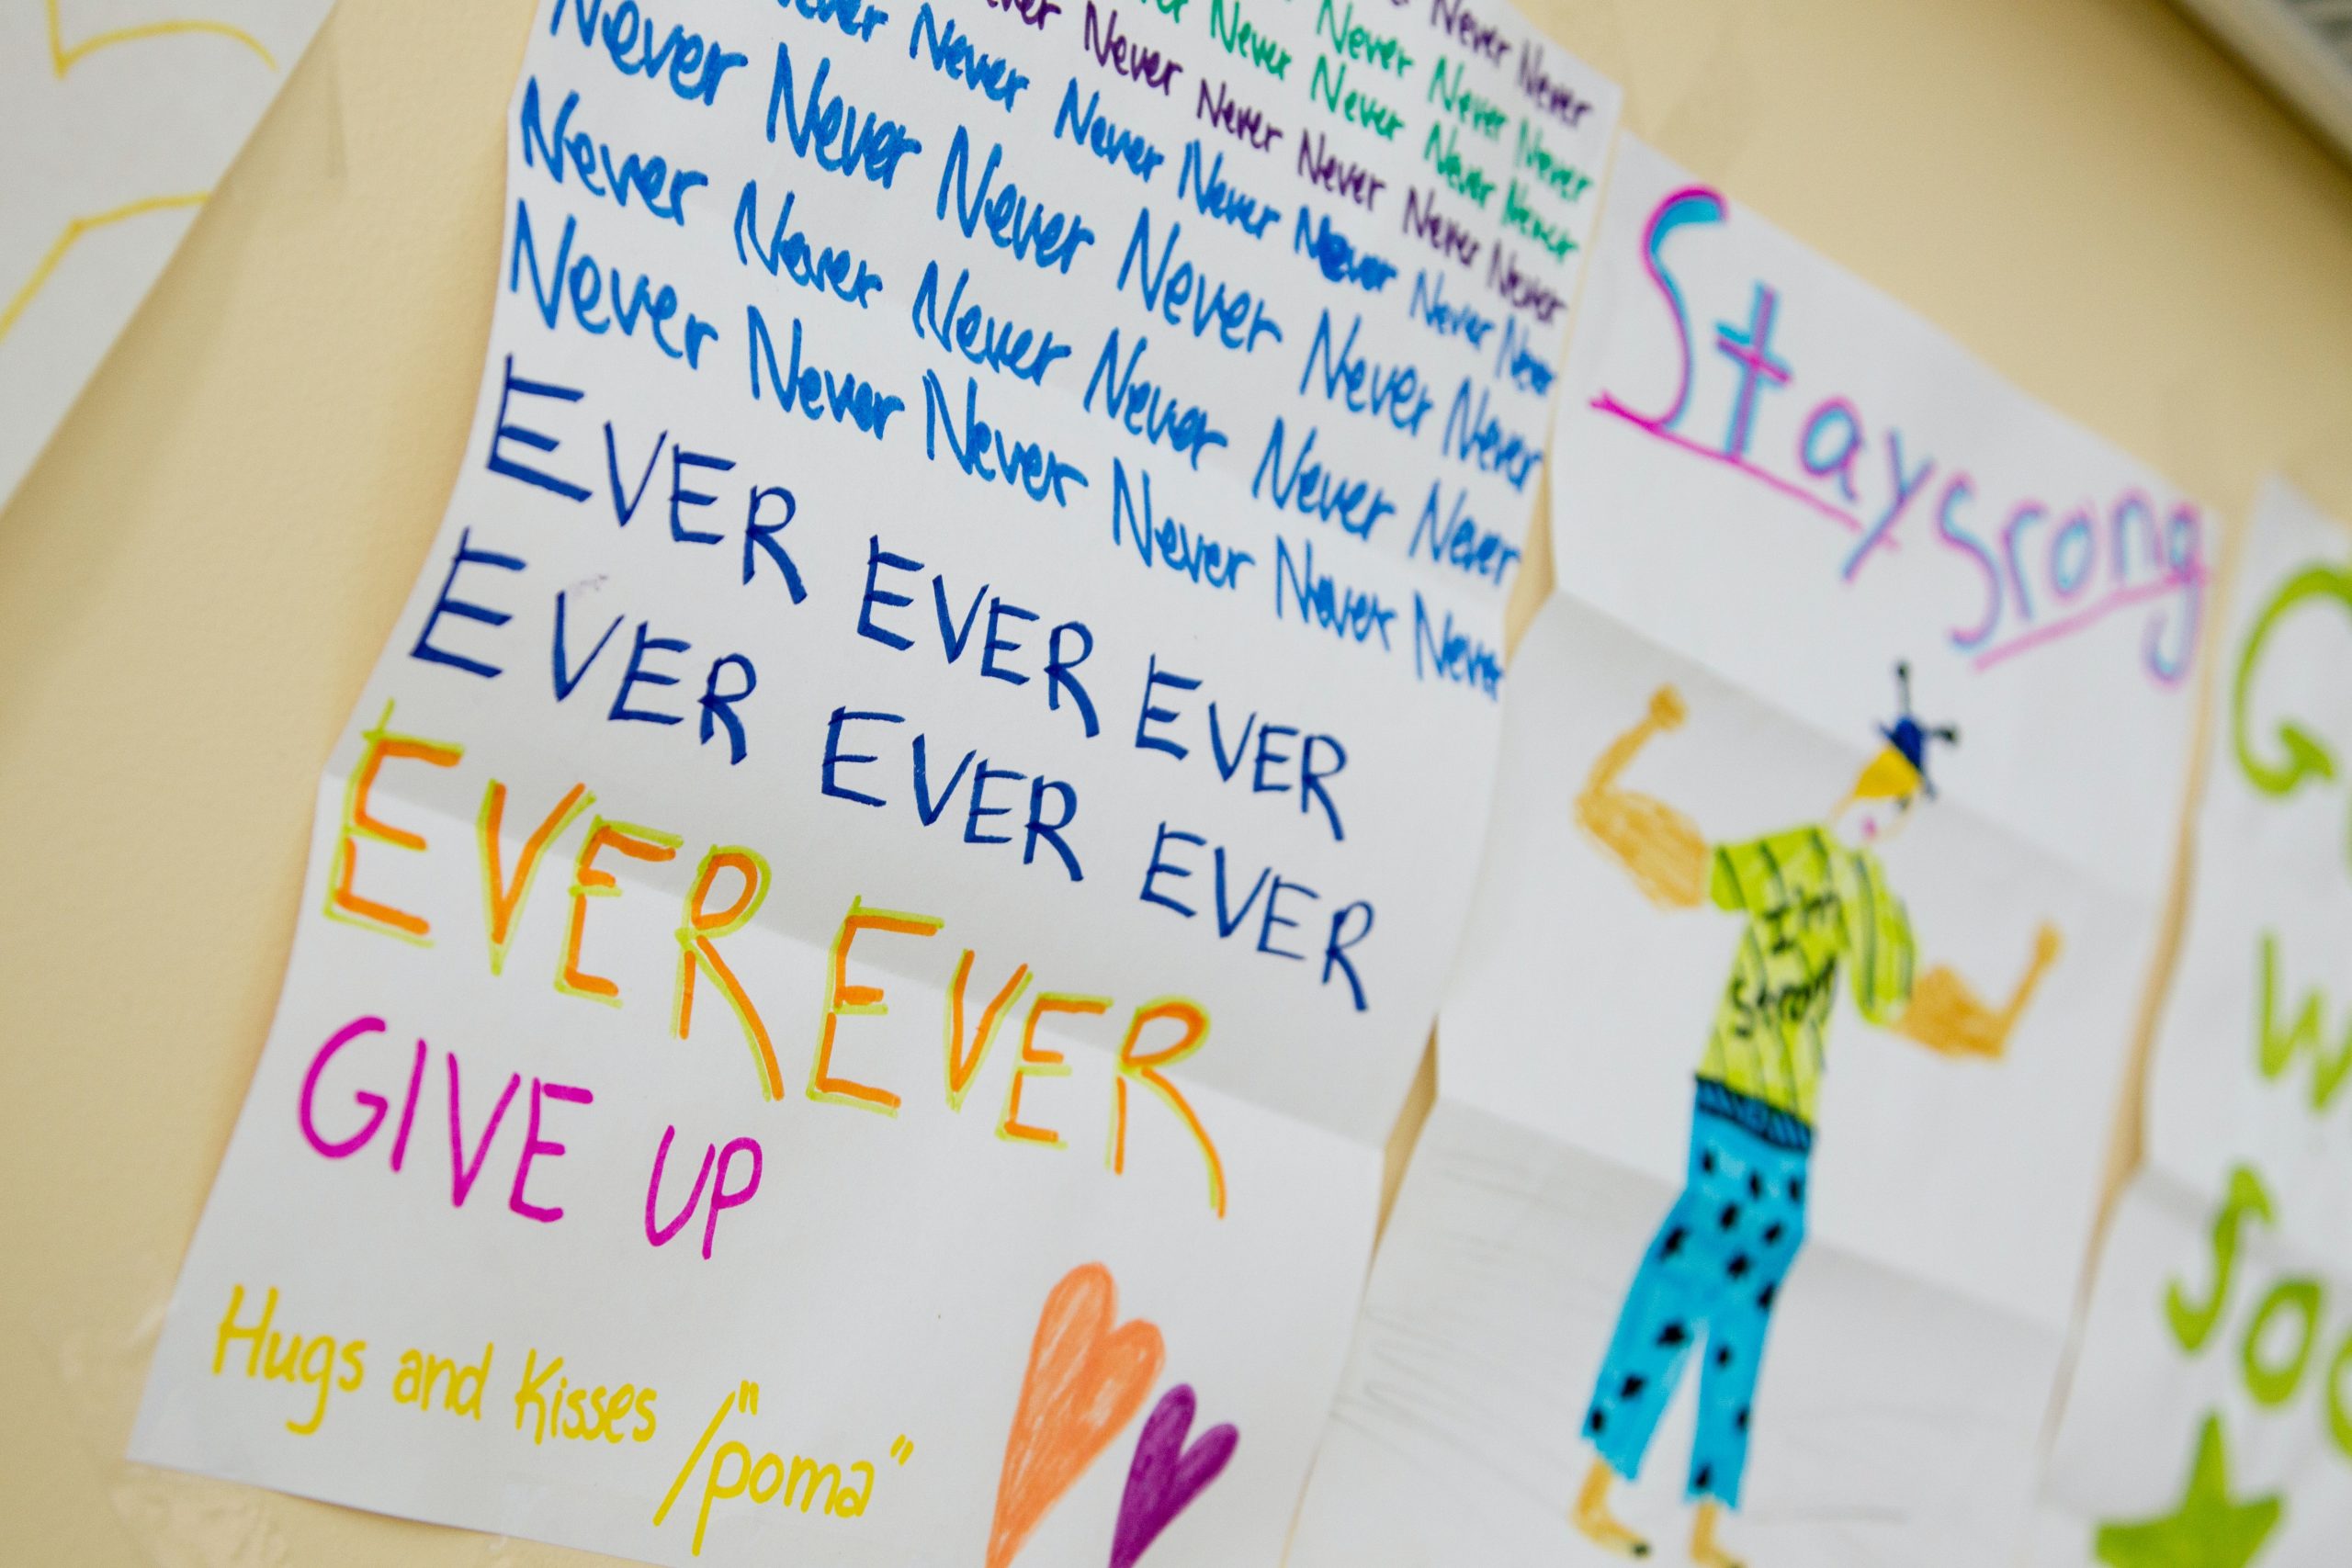 Never Never
Never Never Never
Never Never Never Never
Never Never Never Never Never
Never Never Never Never Never Never
Never Never Never Never Never Never
Never Never Never Never Never Never
Never Never Never Never Never Never
EVER EVER EVER
EVER EVER EVER
EVER EVER
GIVE UP
Hugs and Kisses
/"poma"
Stay Srong
I'm
Strong